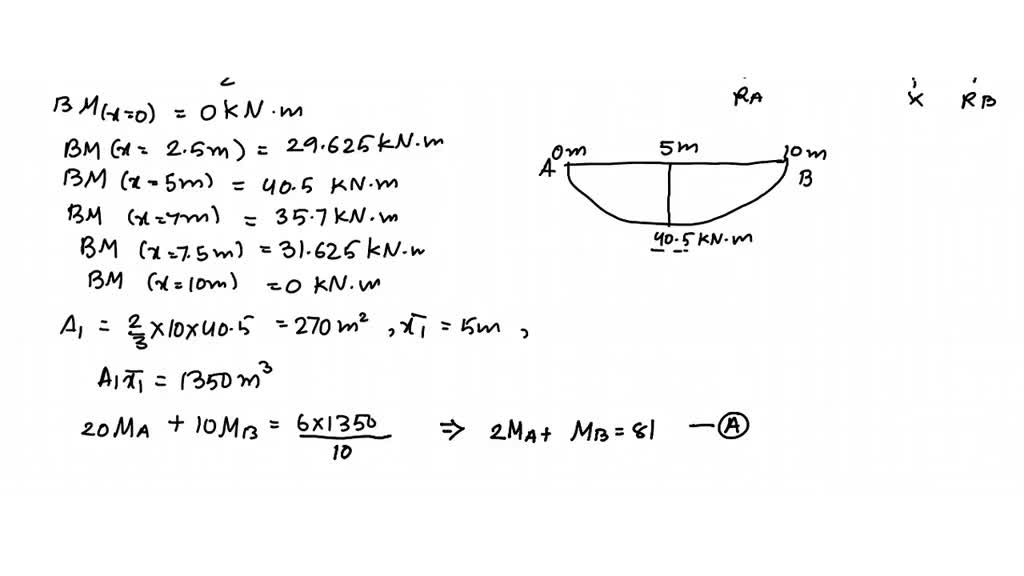 RA X RB
BM(x=0) = 0 kN.m
BM (x= 2.5m) = 29.625 kN.m
BM (x=5m) = 40.5 kN.m
BM (x=7m) = 35.7 kN.m
BM (x=7.5m) = 31.625 kN.m
BM (x=10m) = 0 kN.m
A 0m 5m 10m B
40.5 kN.m
A₁ = 2/3 × 10 × 40.5 = 270 m², x̄₁ = 5m ,
A₁x̄₁ = 1350 m³
20MA + 10MB = 6×1350/10 ⇒ 2MA + MB = 81 — Ⓐ